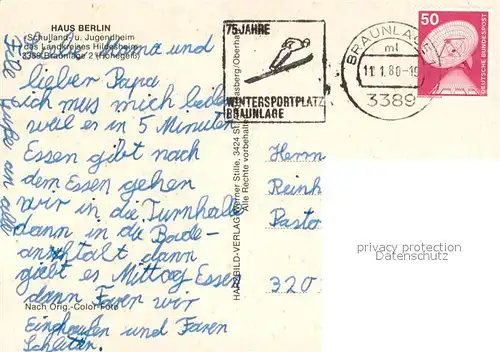 HAUS BERLIN
Schulland- u. Jugendheim
des Landkreises Hildesheim
3389 Braunlage 2 (Hohegeiß)
Liebe Mama und
lieber Papa
ich mus mich beilen
weil es in 5 Minuten
Essen gibt nach
dem Essen gehen
wir in die Turnhalle
dann in die Bade-
anstalt dann
giebt es Mittag Esse
dann Faren wir
Einkaufen und Faren
Schlitten.
Nach Orig.-Color-Foto
Alle Grüße an alle
HARZBILD-VERLAG Werner Stille, 3424 St. Andreasberg/Oberharz
Alle Rechte vorbehalten
75 JAHRE
WINTERSPORTPLATZ
BRAUNLAGE
BRAUNLAGE
ml
11.1.80-19
3389
50
DEUTSCHE BUNDESPOST
Herrn
Reinh
Pastor
320
copyright protection
Datenschutz